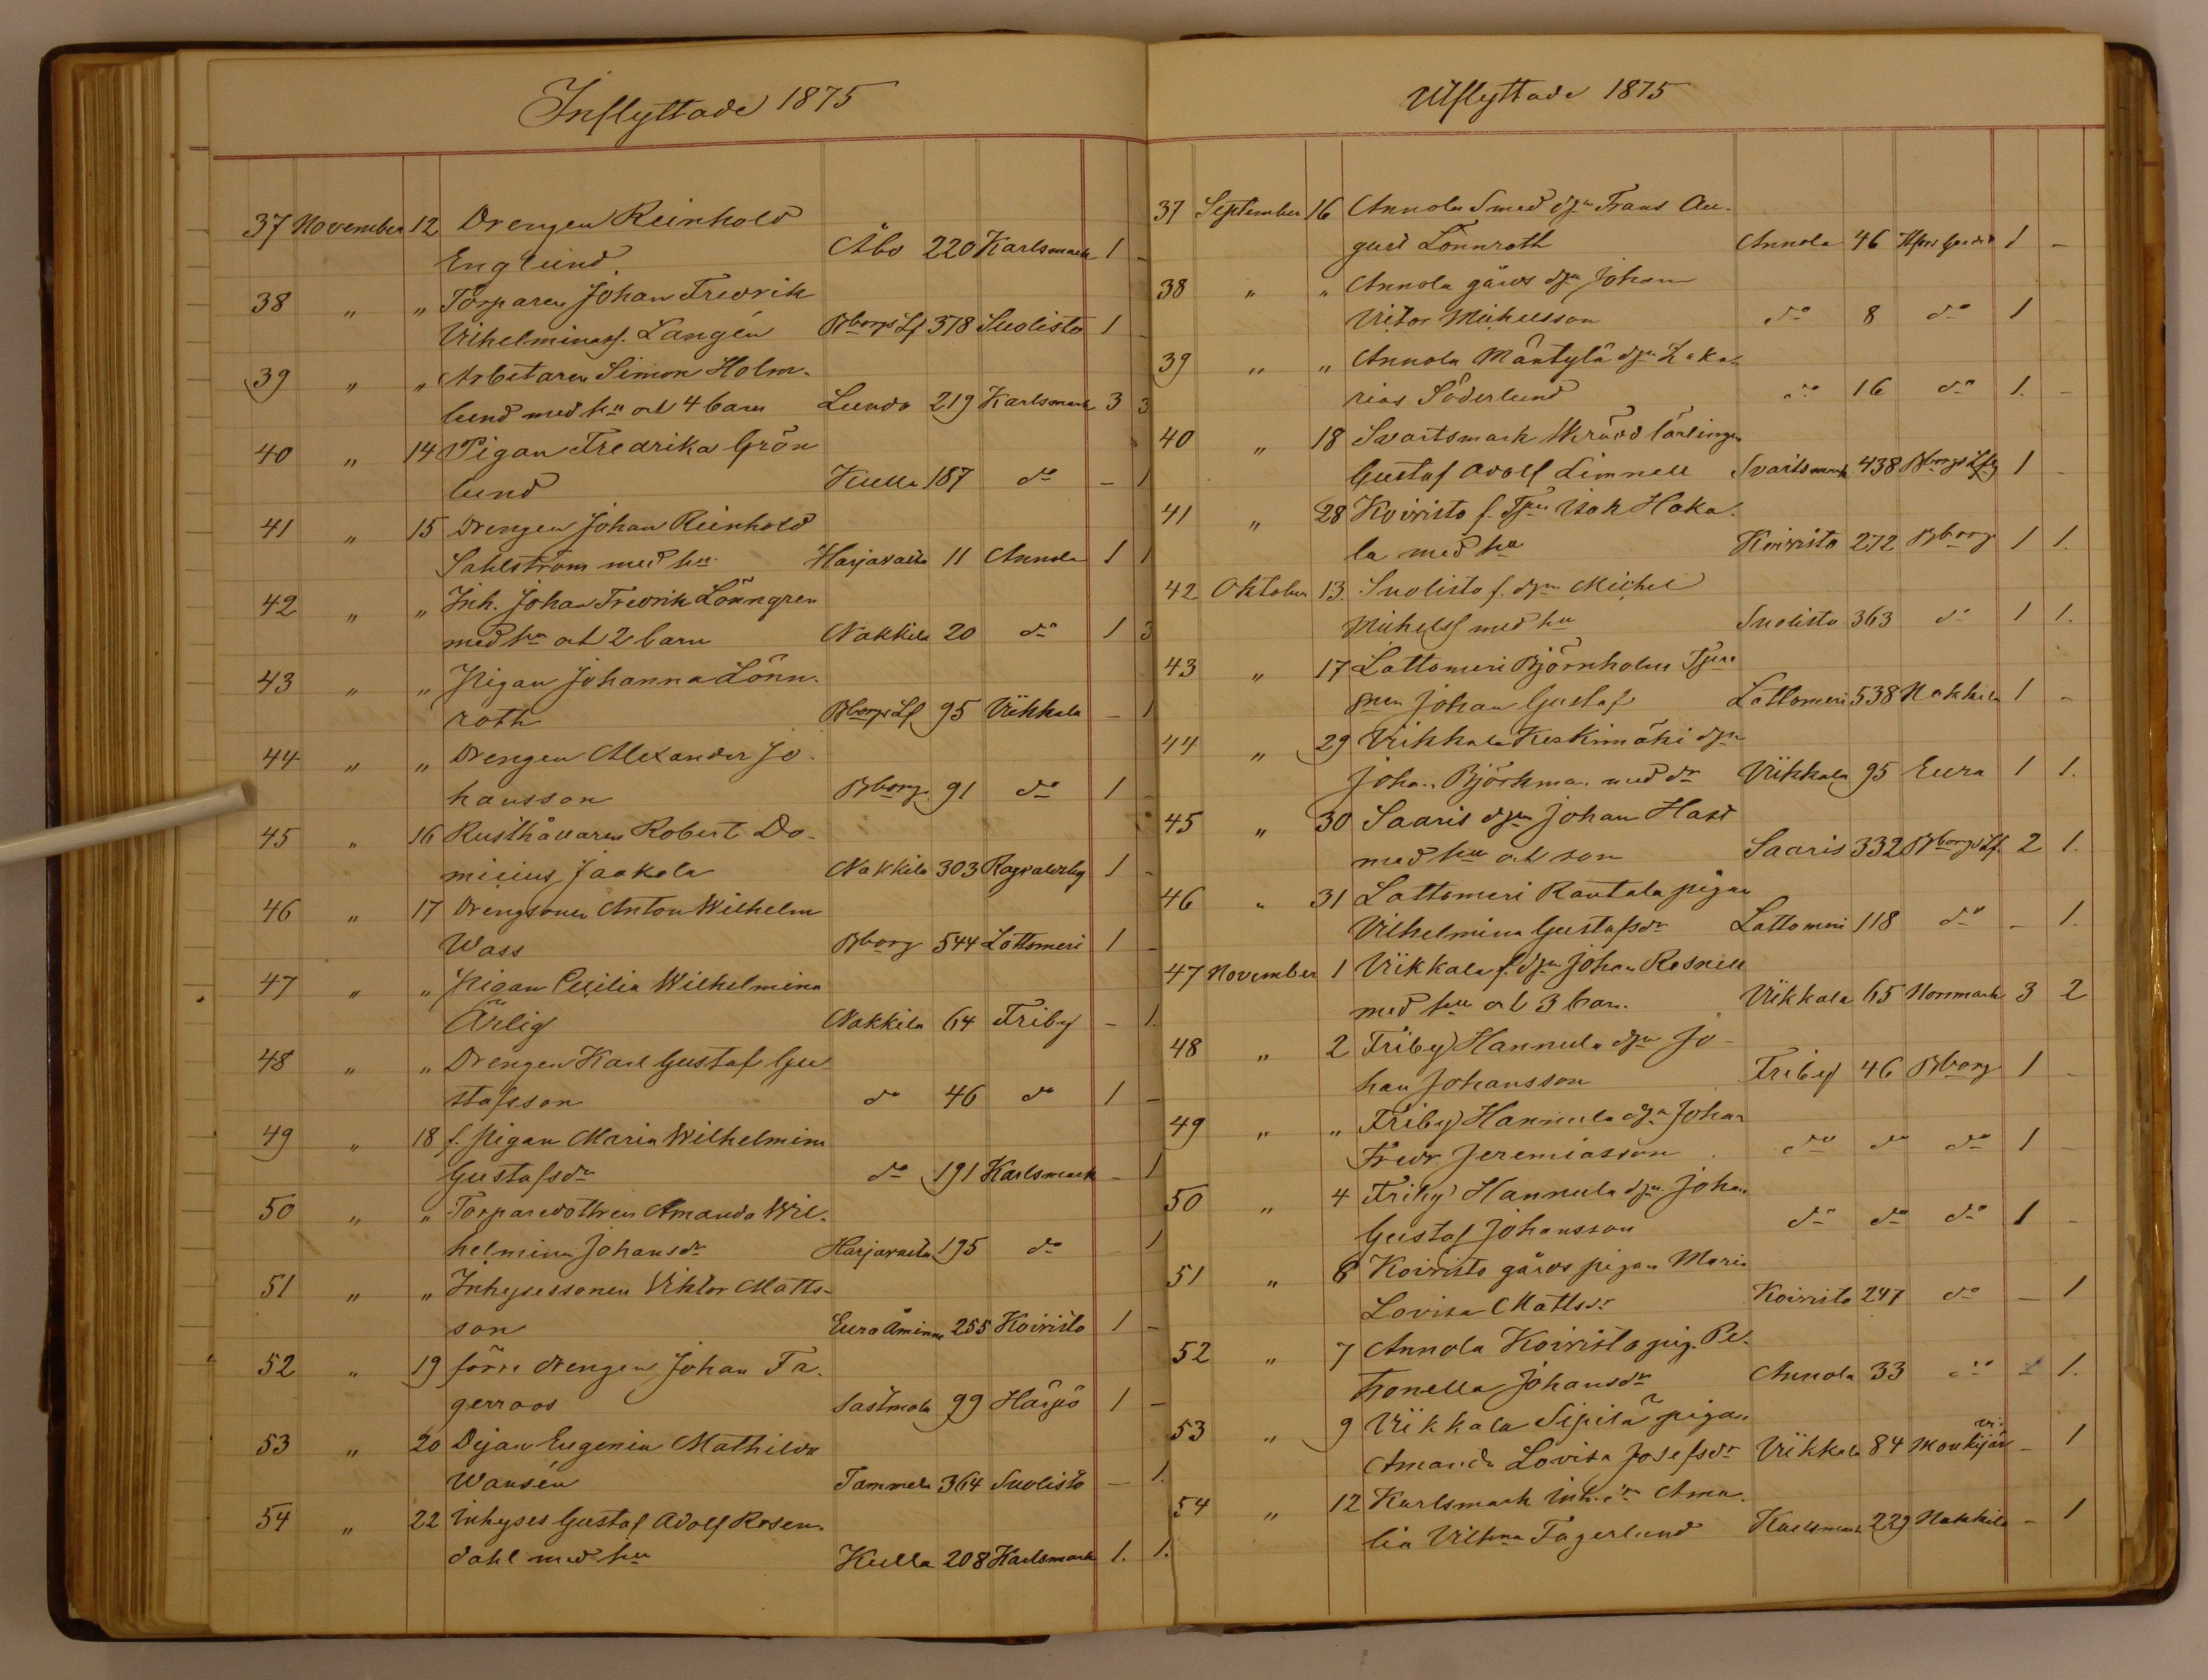 Inflyttade 1875
37 November 12 Drengen Reinhold
Englund Åbo 220 Karlsmark 1 -
38 " " Torparen Johan Fredrik
Vilhelminass. Langén Bborgs Lf 378 Suolisto 1 -
39 " " Arbetaren Simon Holm-
lund med hu och 4 barn Lundo 219 Karlsmark 3 3
40 " 14 Pigan Fredrika Grön
lund Kulla 187 do - 1
41 " 15 Drengen Johan Reinhold
Sahlström med hu Harjavalta 11 Annola 1 1
42 " " Inh. Johan Fredrik Lönngren
med hu och 2 barn Nakkila 20 do 1 3
43 " " Pigan Johanna Lönn-
roth Bborgs Lf 95 Viikkala - 1
44 " " Drengen Alexander Jo-
hansson Bborgs 91 do 1 -
45 " 16 Rusthållaren Robert Do-
micius Jaakola Nakkila 303 Ragvaldsby 1 -
46 " 17 Drengsonen Anton Wilhelm
Wass Bborg 544 Lattomeri 1 -
47 " " Pigan Cecilia Wilhelmina
Ärlig Nakkila 64 Friby - 1
48 " " Drengen Karl Gustaf Gu-
stafsson do 46 do 1 -
49 " 18 f. pigan Maria Wilhelmina
Gustafsdr do 191 Karlsmark - 1
50 " " Torparedottren Amanda Wil-
helmina Johansdr Harjavalta 195 do - 1
51 " " Inhysessonen Viktor Matts-
son Euraåminne 255 Koivisto 1 -
52 " 19 förre drengen Johan Fa-
gerroos Sastmola 99 Härjö 1 -
53 " 20 Dejan Eugenia Mathilda
Wansén Tammela 364 Suolisto - 1.
54 " 22 Inhyses Gustaf Adolf Rosen-
dahl med hu Kulla 208 Karlsmark 1. 1.
Utflyttade 1875
37 September 16 Annola Smed djn Frans Au-
gust Lönnroth Annola 46 1 -
38 " " Annola gårds djn Johan
Victor Michelsson do 8 do 1 -
39 " " Annola Mäntylä djn Zaka-
rias Söderlund do 16 do 1. -
40 " 18 Svartsmark Skräddlärlingen
Gustaf Adolf Limnell Svartsmark 438 Bborgs Lfg 1 -
41 " 28 Koivisto f. Tpn Isak Haka-
la med hu Koivisto 272 Bborg 1 1.
42 Oktober 13. Suolisto f. djn Michel
Michelss med hu Suolisto 363 do 1 1.
43 " 17 Lattomeri Björnholm Tpre
snen Johan Gustaf Lattomeri 538 Nakkila 1 -
44 " 29 Viikkala Keskimäki djn
Johan Björkman med dr Viikkala 95 Eura 1 1.
45 " 30 Saaris djn Johan Hast
med hu och son Saaris 332 Bborgs Lf. 2 1.
46 " 31 Lattomeri Rantala pigan
Vilhelmina Gustafsdr Lattomeri 118 do - 1.
47 November 1 Viikkala f. djn Johan Rosnell
med hu och 3 barn Viikkala 65 Norrmark 3 2
48 " 2 Friby Hannula djn Jo-
han Johansson Friby 46 Bborg 1 -
49 " " Friby Hannula djn Johan
Fredr Jeremiasson do do do 1 -
50 " 4 Friby Hannula djn Johan
Gustaf Johansson do do do 1 -
51 " 6 Koivisto gårds pigan Maria
Lovisa Mattsdr Koivisto 247 do - 1
52 " 7 Annola Koivisto pig. Pe-
tronella Johansdr Annola 33 do - 1.
53 " 9 Viikkala Sipilä pigan
Amanda Lovisa Josefsdr Viikkala 84 Mouhijärvi - 1
54 " 12 Karlsmark inh. dr Ama-
lia Vilhna Fagerlund Karlsmark 229 Nakkila - 1